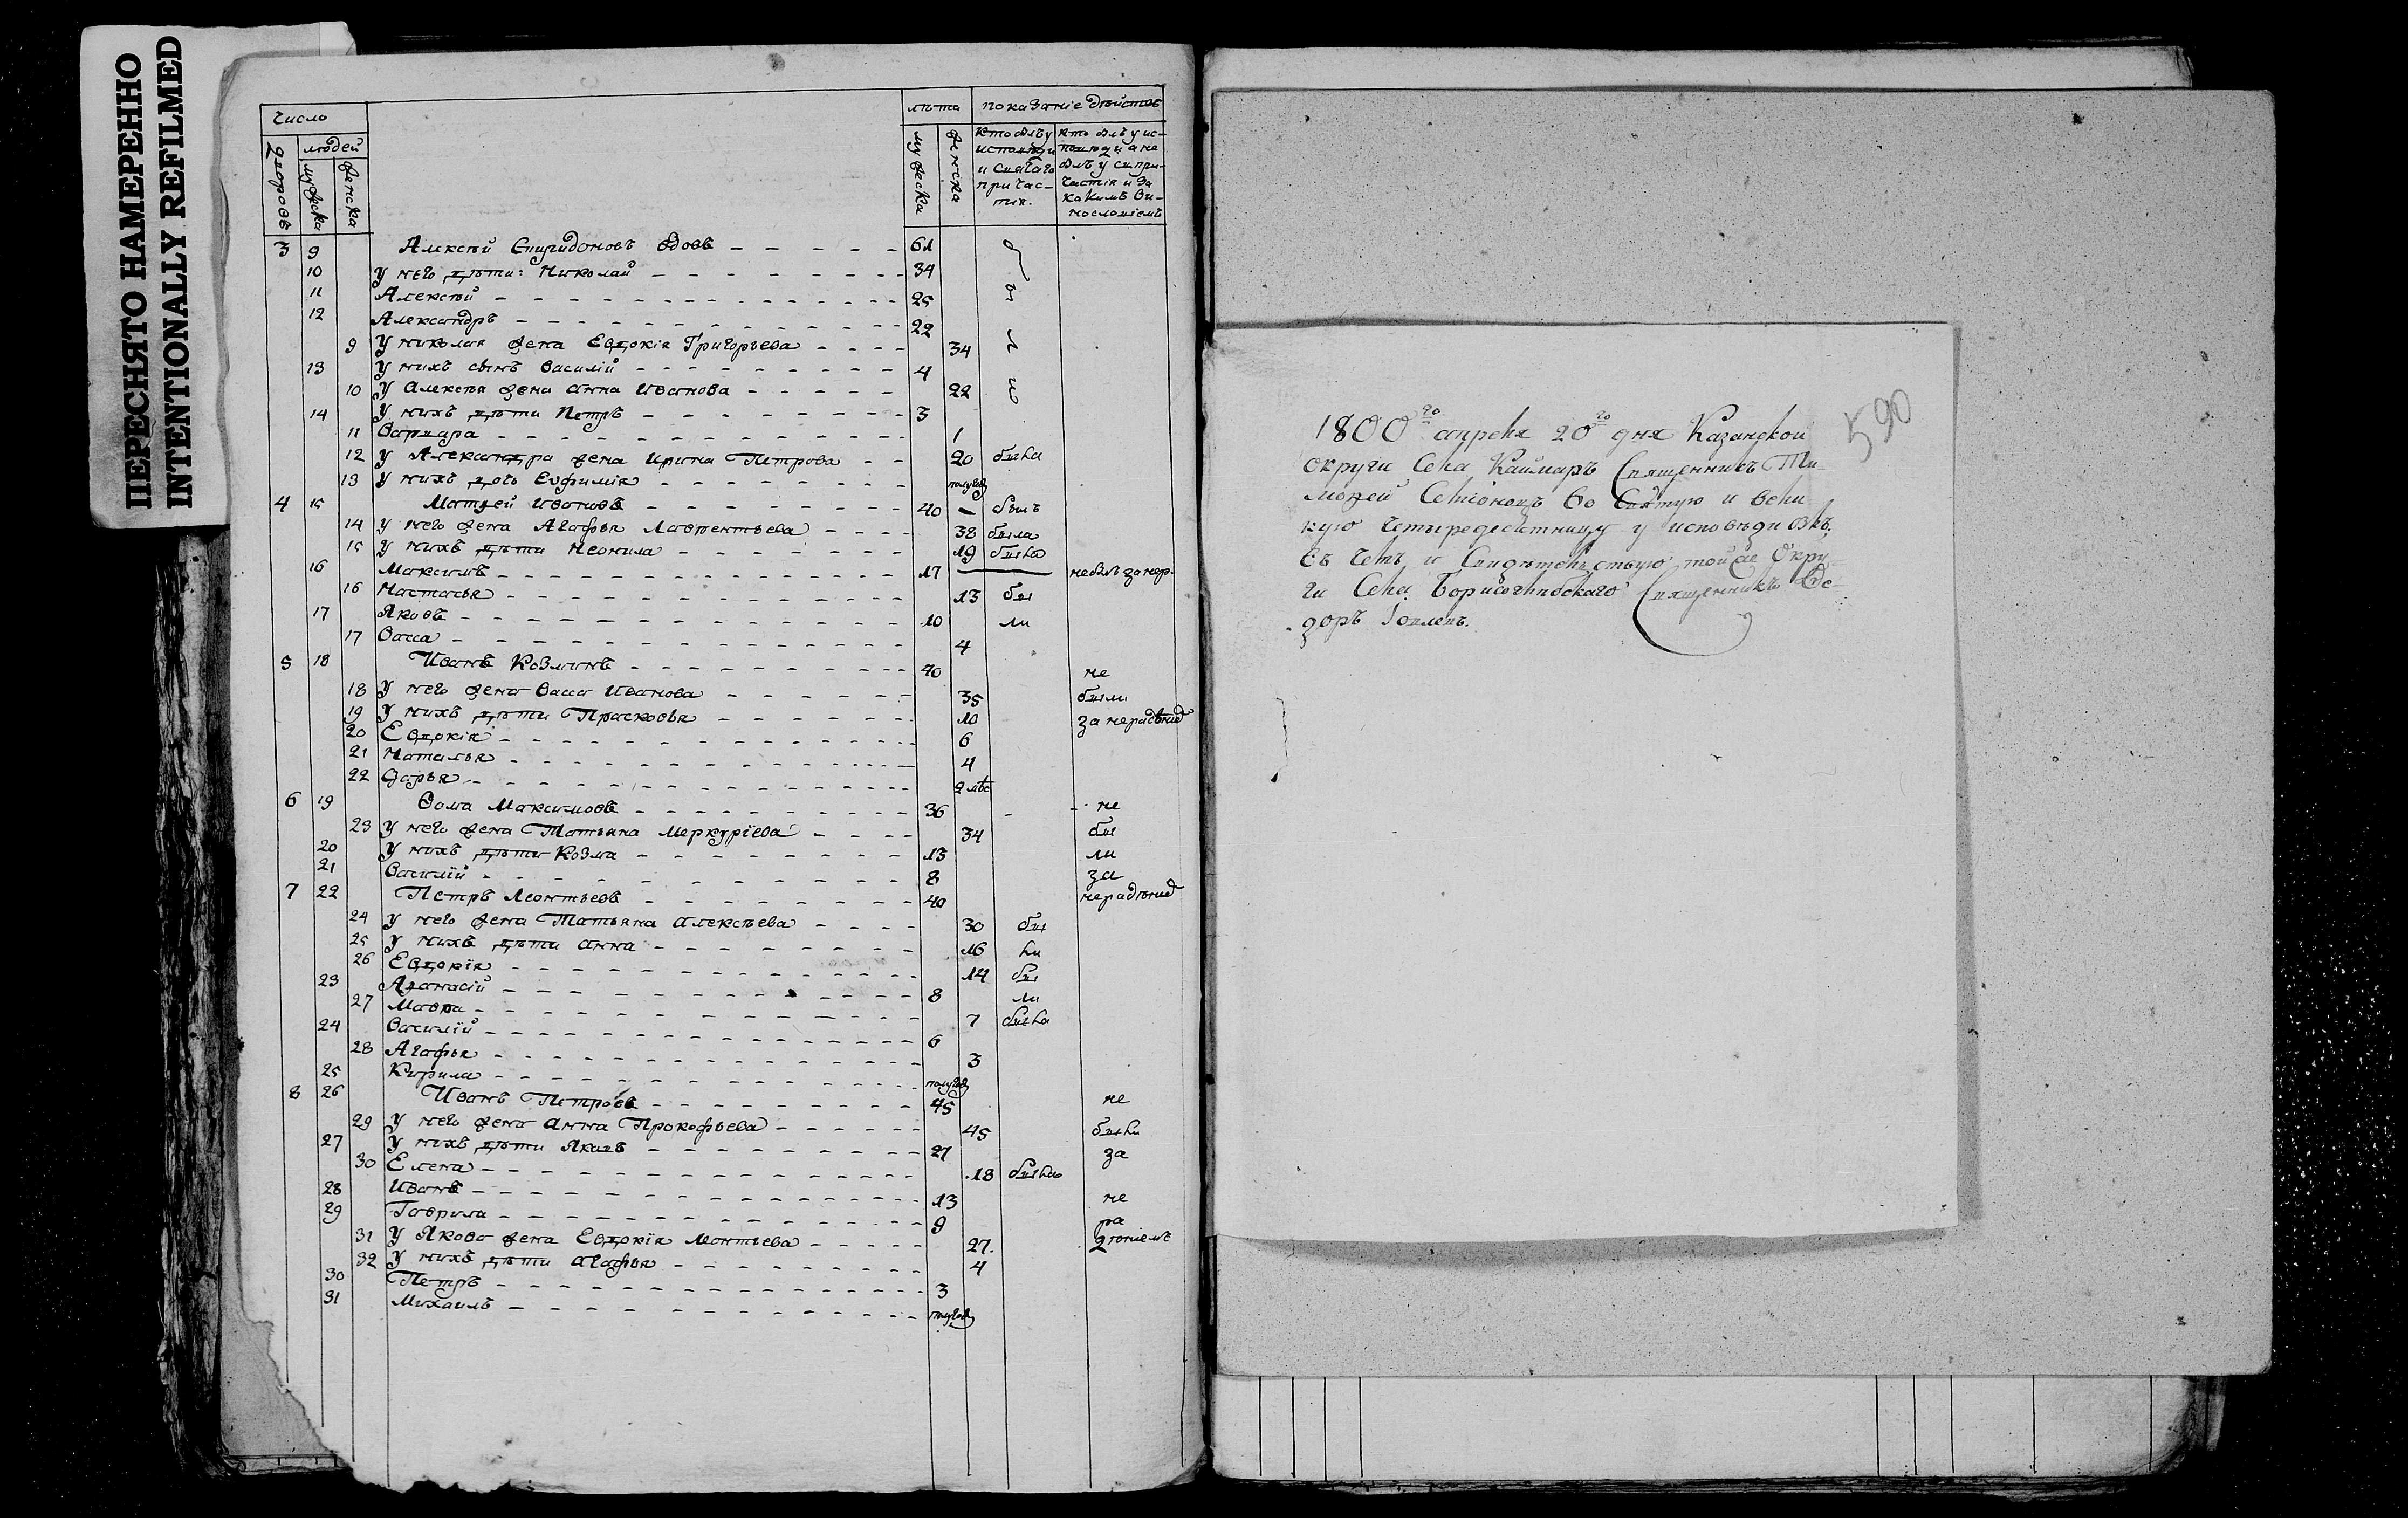 ПЕРЕСНЯТО НАМЕРЕННО
INTENTIONALLY REFILMED
число
лѣта
показаніе дѣйствъ
дворовъ
людей
мужеска
женска
мужеска
женска
кто былъ у исповѣди и святаго причастія.
кто былъ у исповѣди а не былъ у св. причастія и за какимъ винословіемъ
3 9 Алексѣй Спиридоновъ вдовъ 61 б
10 у него дѣти: Николай 34
11 Алексѣй 25 ы
12 Александръ 22
9 у Николая жена Евдокія Григорьева 34 л
13 у нихъ сынъ Василій 4
10 у Алексѣя жена Анна Иванова 22 и
14 у нихъ дѣти Петръ 3
11 Варвара 1
12 у Александра жена Ирина Петрова 20 была
13 у нихъ дочь Евфимія полугод
4 15 Матвей Ивановъ 40 – былъ
14 у него жена Агафья Лаврентьева 38 была
15 у нихъ дѣти Неонила 19 была
16 Максимъ 17 не былъ за нер.
16 Настасья 13 бы
17 Яковъ 10 ли
17 Васса 4
5 18 Иванъ Козминъ 40 не
18 у него жена Васса Иванова 35 были
19 у нихъ дѣти Прасковья 10 за нерадѣніе
20 Евдокія 6
21 Наталья 4
22 Дарья 2 мѣс
6 19 Ѳома Максимовъ 36 не
23 у него жена Татьяна Меркуріева 34 бы
20 у нихъ дѣти Козма 13 ли
21 Василій 8 за
7 22 Петръ Леонтьевъ 40 нерадѣніе
24 у него жена Татьяна Алексѣева 30 бы
25 у нихъ дѣти Анна 16 ли
26 Евдокія 14 бы
23 Аѳанасій 8 ли
27 Мавра 7 была
24 Василій 6
28 Агафья 3
25 Кирила полугод
8 26 Иванъ Петровъ 45 не
29 у него жена Анна Прокофьева 45 были
27 у нихъ дѣти Яковъ 27 за
30 Елена 18 была
28 Иванъ 13 не
29 Гаврила 9 ра
31 у Якова жена Евдокія Леонтьева 27. дѣніемъ
32 у нихъ дѣти Агафья 4
30 Петръ 3
31 Михаилъ полугод
590
1800го апреля 20го дня Казанской
округи села Каймаръ Священникъ Ти-
мофей Семіоновъ во Святую и вели-
кую четыредесятницу у исповѣди былъ,
въ чемъ и свидѣтельствую той же окру-
ги села Борисоглѣбскаго Священникъ Ѳе-
доръ